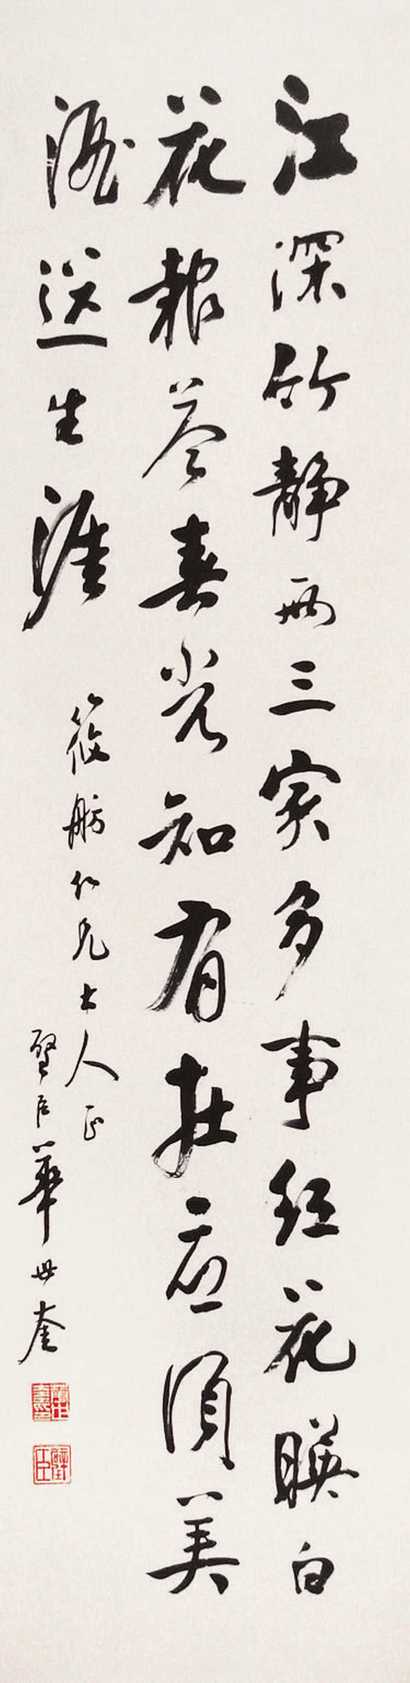 江深竹静两三家多事红花暎白
花报答春光知有在应须美
酒送生涯
筱舫仁兄大人正
璧臣華世奎